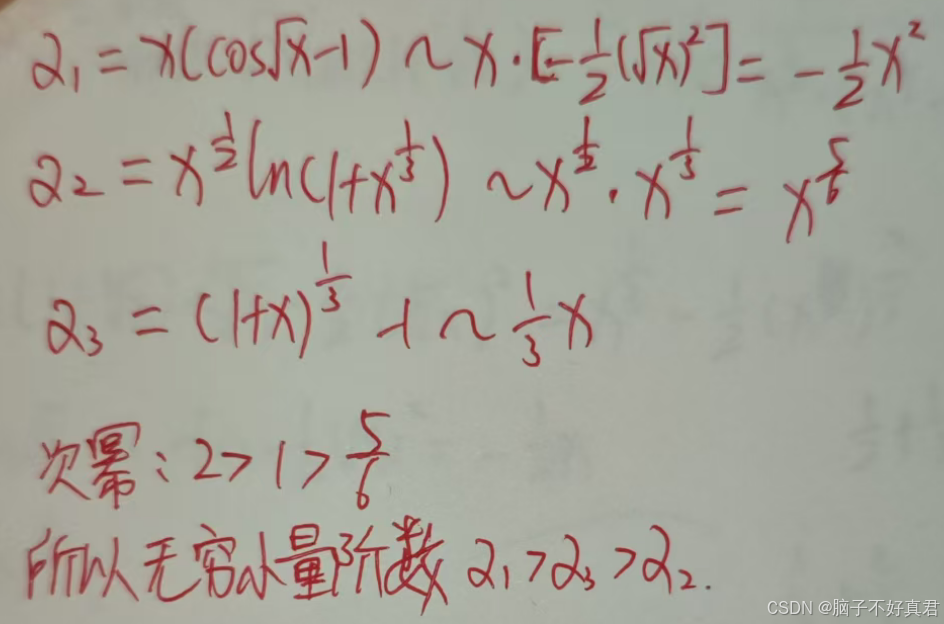 α₁ = x(cos√x-1) ~ x·[-½(√x)²] = -½x²
α₂ = x^{1/2}ln(1+x^{1/3}) ~ x^{1/2}·x^{1/3} = x^{5/6}
α₃ = (1+x)^{1/3} -1 ~ 1/3 x
次幂: 2>1>5/6
所以无穷小量阶数 α₁>α₃>α₂.
CSDN @脑子不好真君